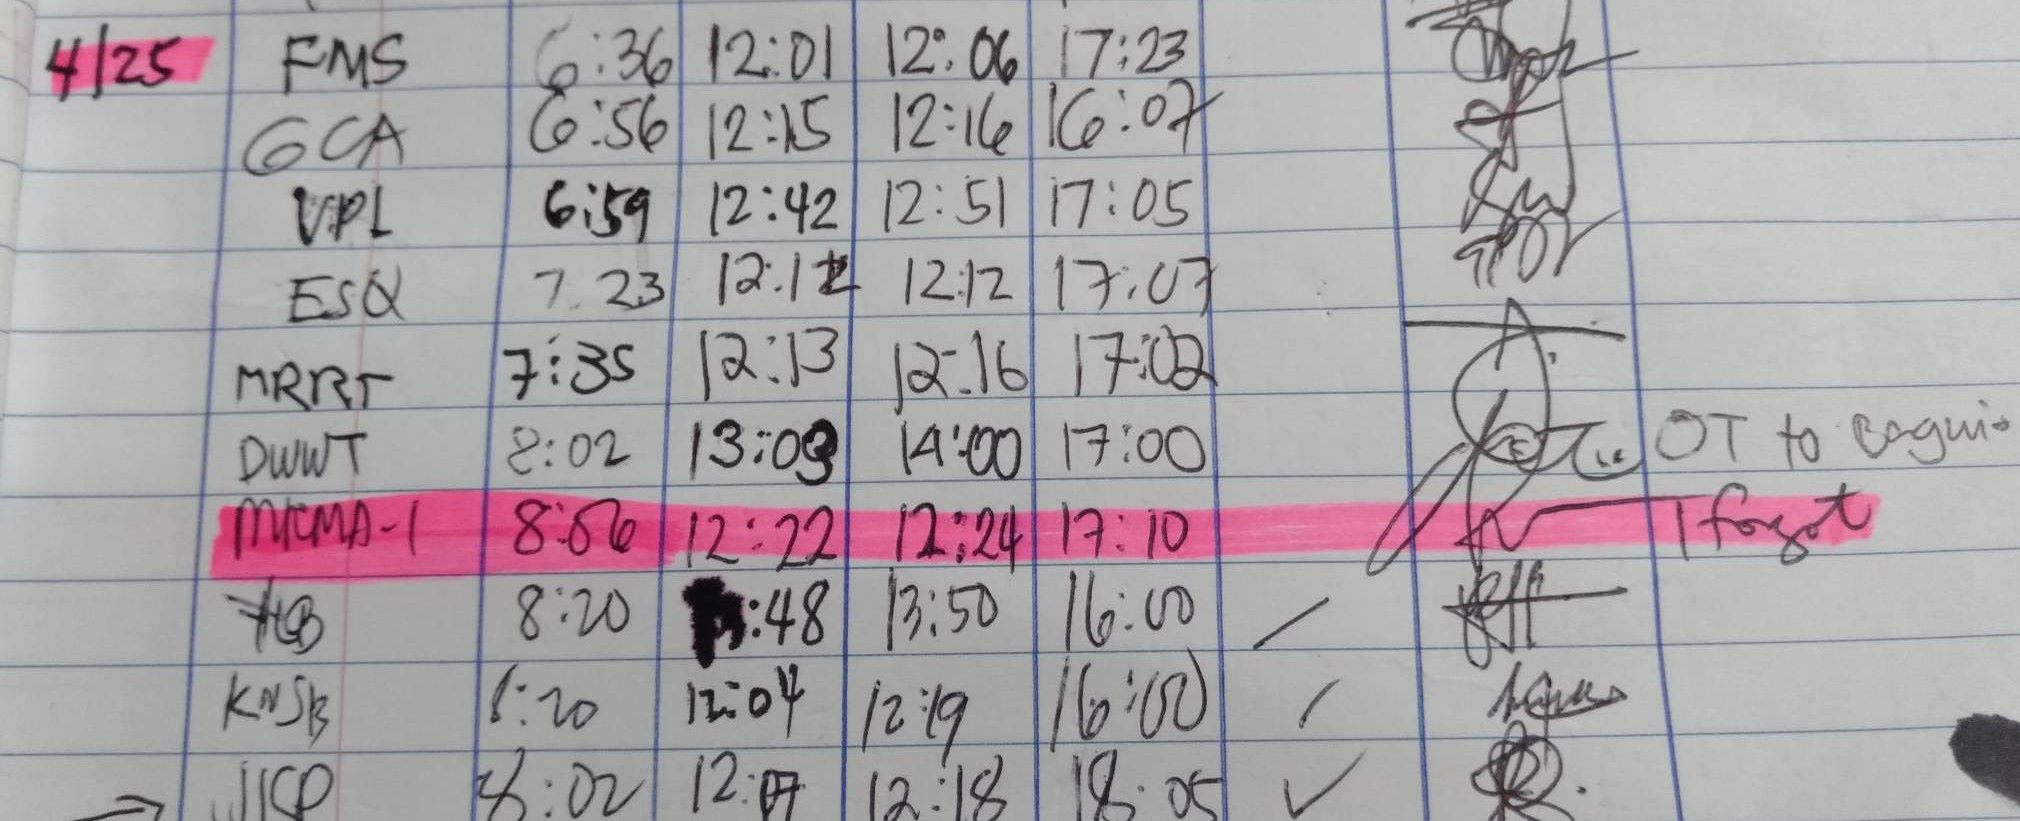 4/25 FMS 6:36 12:01 12:06 17:23
GCA 6:56 12:15 12:16 16:07
VPL 6:59 12:42 12:51 17:05
ESQ 7.23 12:12 12:12 17:07
MRRT 7:35 12:13 12:16 17:02
DWWT 8:02 13:03 14:00 17:00 OT to Baguio
8:06 12:22 12:24 17:10 I forgot
8:20 :48 13:50 16:00
KNSB :20 12:04 12:19 16:00
8:02 12:07 12:18 18:05